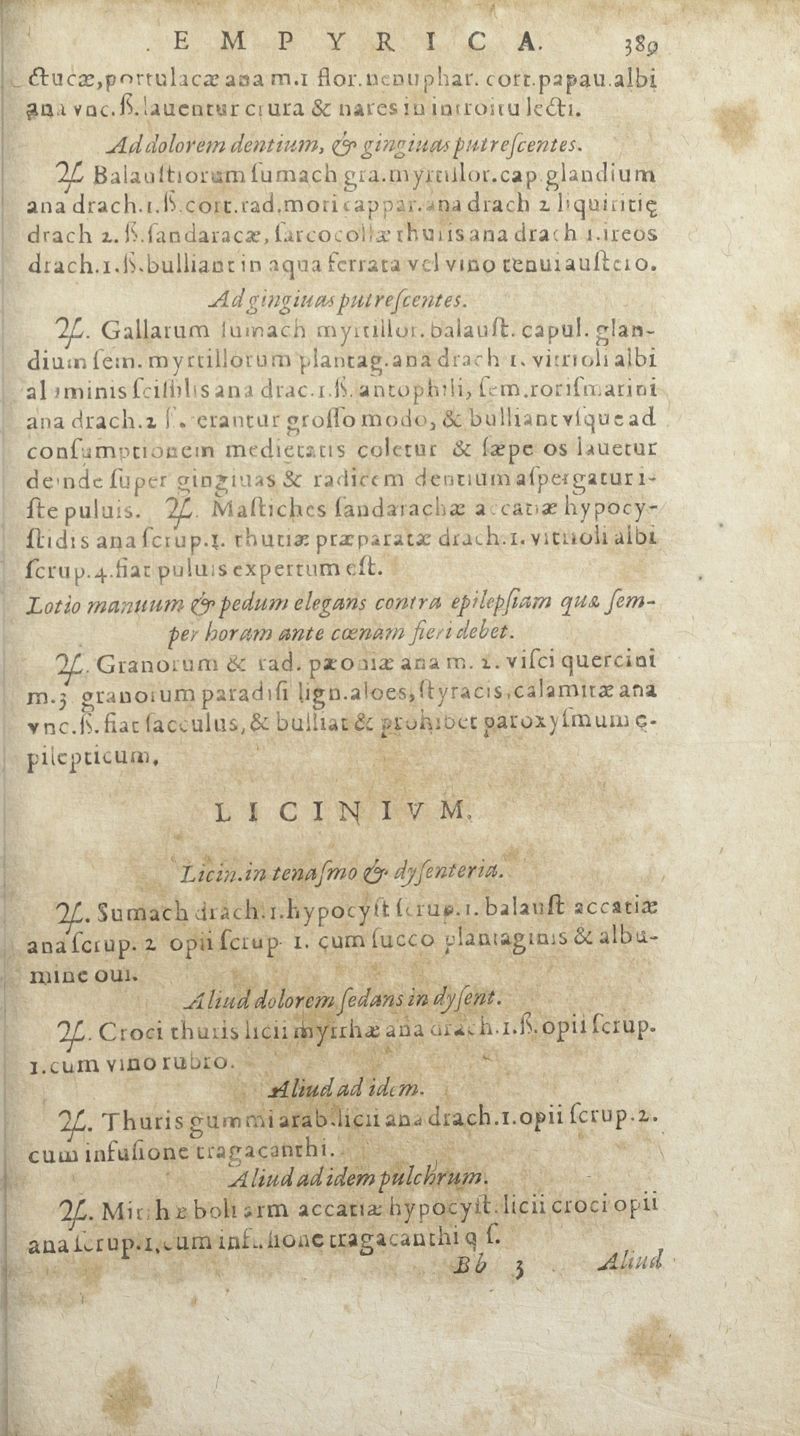 E M P Y R I C A. 389
ctucæ, portulacæ ana m.1 flor. nenuphar. cort. papau. albi
ana vnc. ß. lauentur crura & nares in introitu lecti.
Ad dolorem dentium, & gingiuas putrescentes.
♃ Balaustiorum sumach gra. myrtillor. cap. glandium
ana drach. 1. ß. cort. rad. mori cappar. ana drach 2 liquiritię
drach 2. ß. sandaracæ, sarcocollæ thuris ana drach 1. ireos
drach. 1. ß. bulliant in aqua ferrata vel vino tenui austero.
Ad gingiuas putrescentes.
♃. Gallarum sumach myrtillor. balaust. capul. glan-
dium sem. myrtillorum plantag. ana drach 1. vitrioli albi
aluminis scissilis ana drac. 1. ß. antophili, sem. rorismarini
ana drach. 2 ſ. terantur grosso modo, & bulliant vsque ad
consumptionem medietatis coletur & sæpe os lauetur
deinde super gingiuas & radicem dentium aspergatur i-
ste puluis. ♃. Mastiches sandarachæ accatiæ hypocy-
stidis ana scrup. 1. thutiæ præparatæ drach. 1. vitrioli albi
scrup. 4. fiat puluis expertum est.
Lotio manuum & pedum elegans contra epilepsiam quæ sem-
per horam ante cœnam fieri debet.
♃. Granorum & rad. pæoniæ ana m. 2. visci quercini
m. 3 granorum paradisi lign. aloes, styracis, calamitæ ana
vnc. ß. fiat sacculus, & bulliat & prohibet paroxysmum e-
pilepticum.
L I C I N I V M.
Licin. in tenasmo & dysenteria.
♃. Sumach drach. 1. hypocyst scrup. 1. balaust accatiæ
ana scrup. 2 opii scrup. 1. cum succo plantaginis & albu-
mine oui.
Aliud dolorem sedans in dysent.
♃. Croci thuris licii myrrhæ ana drach. 1. ß. opii scrup.
1. cum vino rubro.
Aliud ad idem.
♃. Thuris gummi arab. licii ana drach. 1. opii scrup. 2.
cum infusione tragacanthi.
Aliud ad idem pulchrum.
♃. Mirrhæ boli arm accatiæ hypocyst. licii croci opii
ana scrup. 1. cum infusione tragacanthi q s.
Bb 3 Aliud